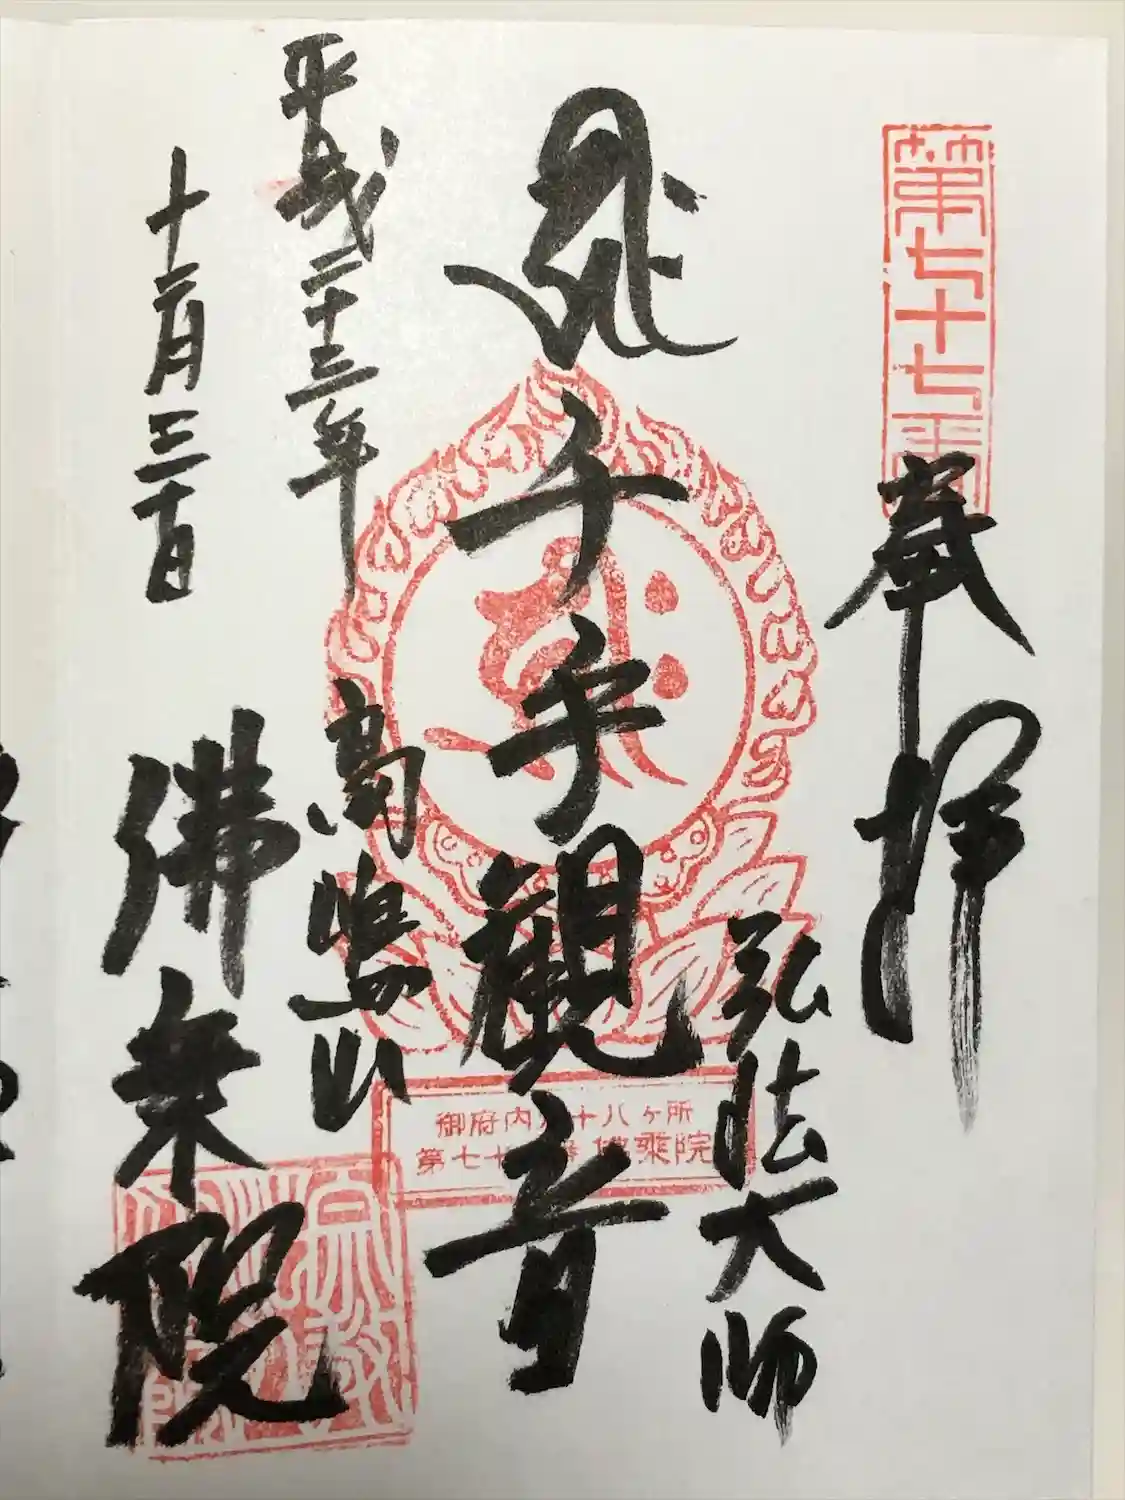 第七十七番
奉拝
弘法大師
千手観音
御府内八十八ヶ所
第七十七番 佛乗院
高嶋山
佛乗院
平成二十三年
十二月三十日